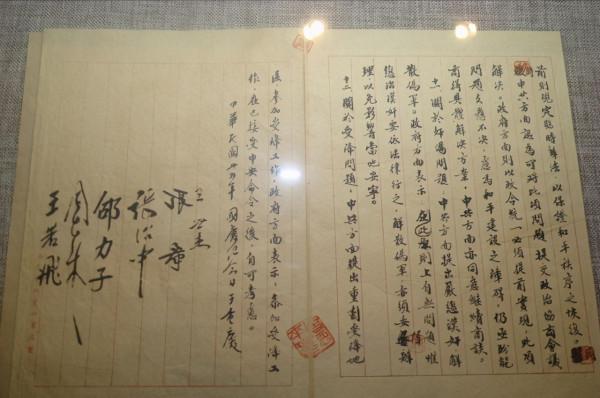 前則規定臨時辦法,以保證和平秩序之恢復。
中共方面認為可將此項問題提交政治協商會議
解決。政府方面則以政令統一必須提前實現,此項
問題久懸不決,慮為和平建設之障碍,仍亟盼能
商得具體解決方案,中共方面亦同意繼續商談。
十一、關於奸偽問題,中共方面提出嚴懲漢奸解
散偽軍。政府方面表示在此原則上自無問題,惟
懲治漢奸要依法律行之,解散偽軍亦須妥慎辦
理,以免影響當地安寧。
十二、關於受降問題,中共方面提出重劃受降地
區,參加受降工作,政府方面表示,參加受降工
作,在已接受中央命令之後,自可考慮。
中華民國卅四年國慶紀念日于重慶
王世杰
張羣
張治中
邵力子
周恩來
王若飛